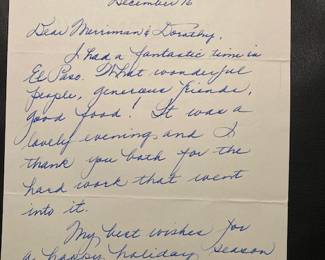 December 16
Dear Merriman & Dorothy,
I had a fantastic time in
El Paso. What wonderful
people, generous friends,
good food! It was a
lovely evening and I
thank you both for the
hard work that went
into it.
My best wishes for
a happy holiday season